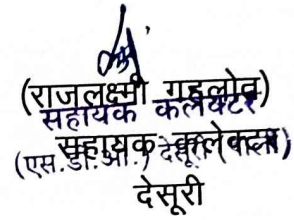 (राजलक्ष्मी गहलोत)
सहायक कलेक्टर
सहायक कलेक्टर
(एस.डी.ओ.) देसूरी (पाली)
देसूरी